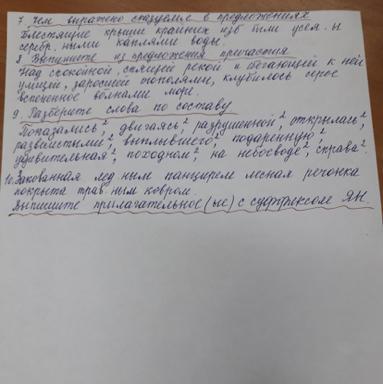 7. Чем выражено сказуемое в предложениях
Блестящие крыши крайних изб были усея..ы
серебр..ными каплями воды.
8. Выпишите из предложения причастия
Над спокойной, спящей рекой и сбегающей к ней
улицей, заросшей тополями, клубилось серое
вспененное волнами море.
9. Разберите слова по составу
Показались², двигаясь², разрушенной², открылась²,
развесистыми², выплывшего², подаренную²,
удивительная², походном², на небосводе², справа²
10. Закованная лед..ным панцирем лесная речонка
покрыта трав..ным ковром.
Выпишите прилагательное(ые) с суффиксом ЯН.